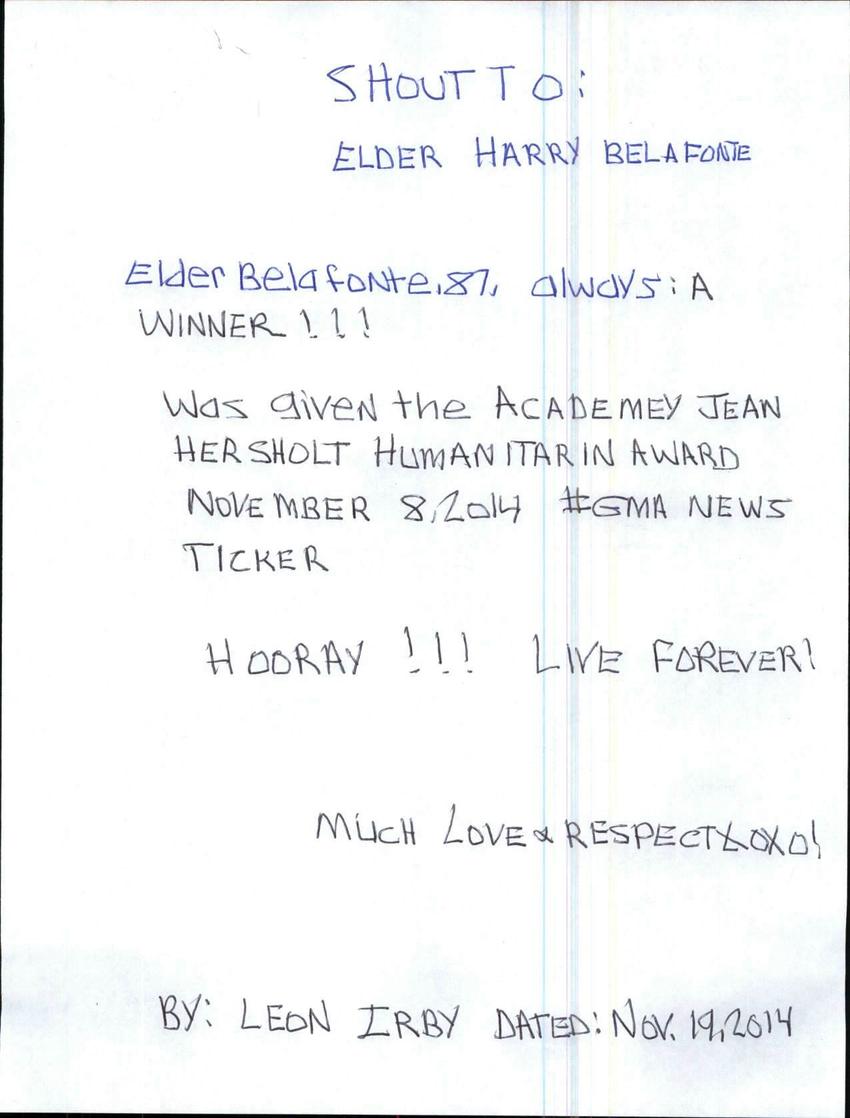 SHOUT TO:
ELDER HARRY BELAFONTE
Elder Belafonte, 87, always: A
WINNER!!!
Was given the ACADEMEY JEAN
HERSHOLT HUMANITARIN AWARD
NOVEMBER 8, 2014 #GMA NEWS
TICKER
HOORAY !!! LIVE FOREVER!
MUCH LOVE & RESPECT XOXO!
BY: LEON IRBY DATED: NOV. 19, 2014